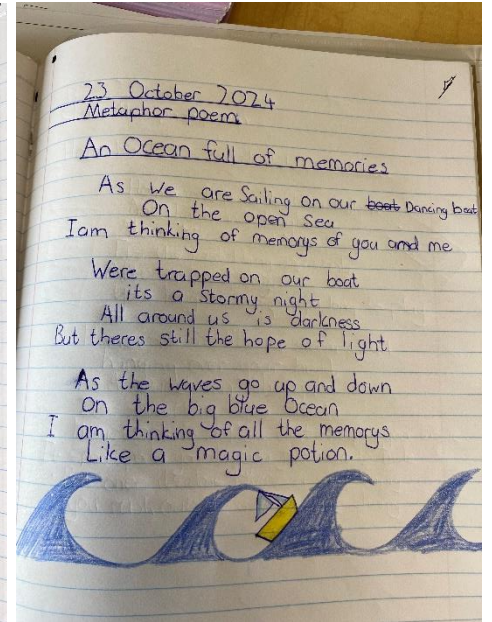 23 October 2024
Metaphor poem
An Ocean full of memories
As we are Sailing on our boat Dancing boat
On the open sea
I am thinking of memorys of you and me
Were trapped on our boat
its a stormy night
All around us is darkness
But theres still the hope of light
As the waves go up and down
On the big blue Ocean
I am thinking of all the memorys
Like a magic potion.